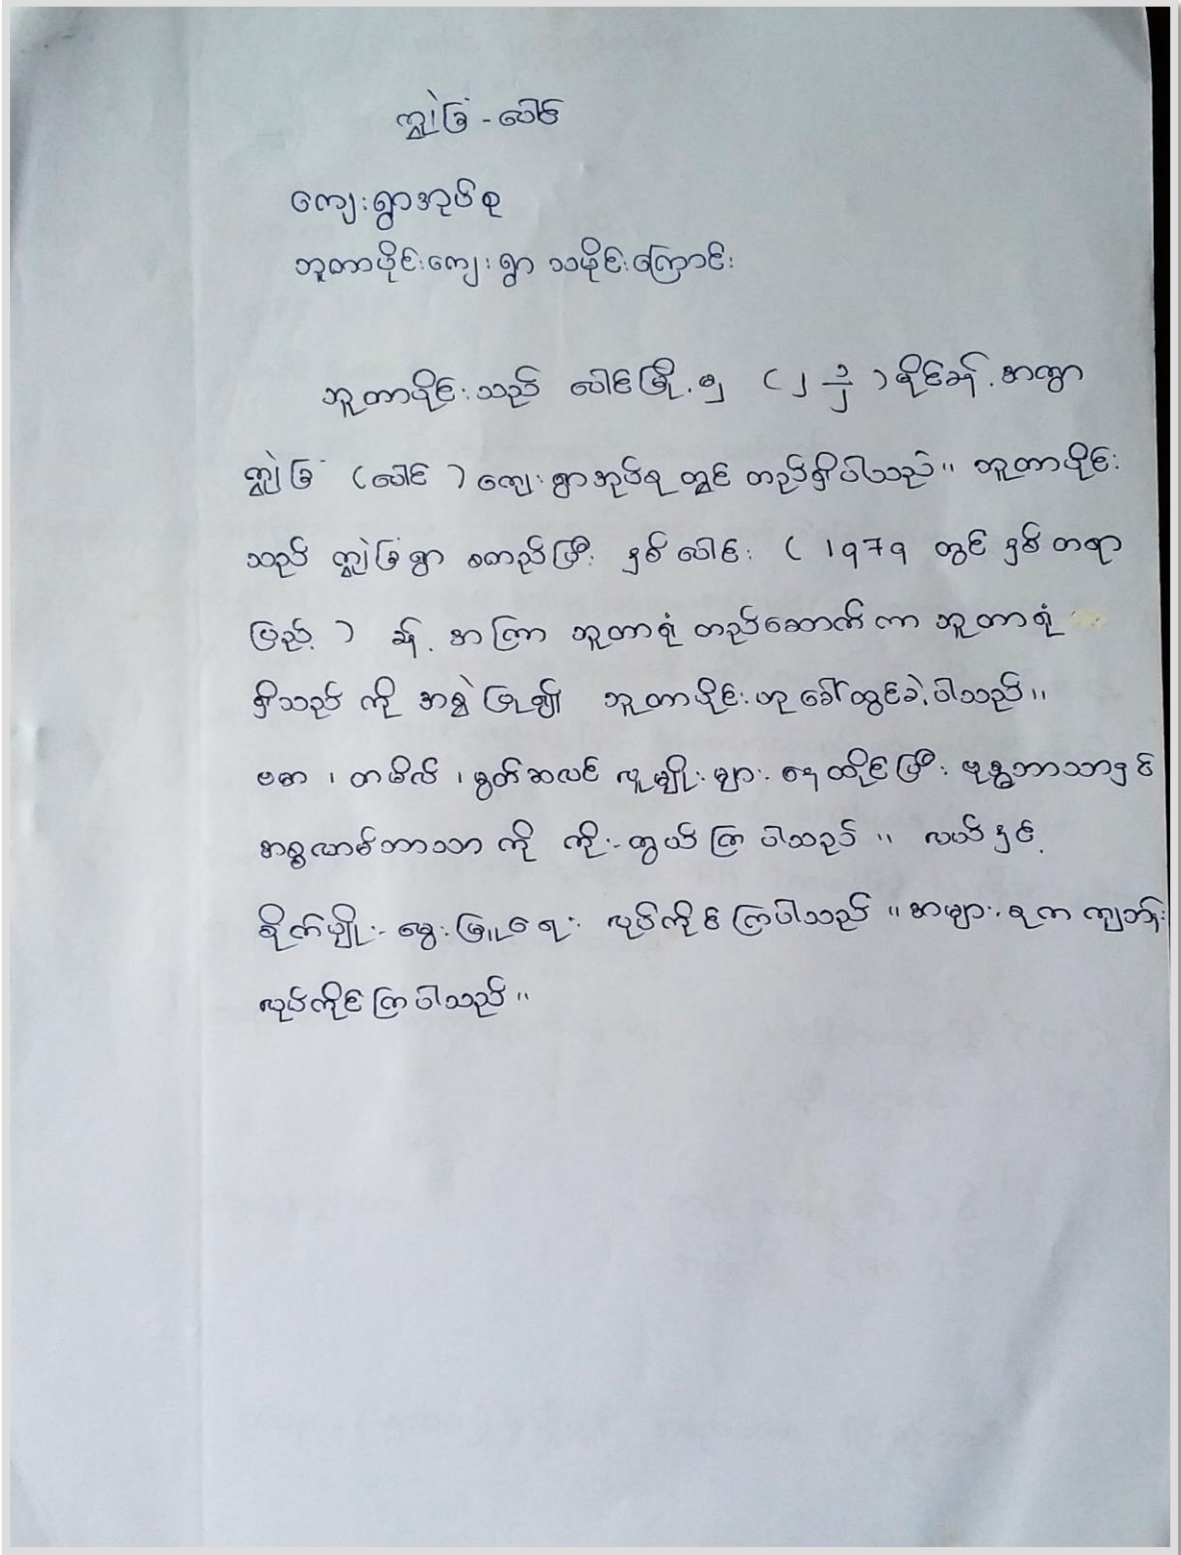 ကျွဲခြံ - ပေါင်
ကျေးရွာအုပ်စု
ဘူတာပိုင်းကျေးရွာ သမိုင်းကြောင်း
ဘူတာပိုင်းသည် ပေါင်မြို့မှ ( ၂ ၁/၂ ) မိုင်ခန့်အကွာ
ကျွဲခြံ (ပေါင် ) ကျေးရွာအုပ်စု တွင် တည်ရှိပါသည်။ ဘူတာပိုင်း
သည် ကျွဲခြံရွာ စတည်ပြီး နှစ်ပေါင်း ( 1979 တွင် နှစ်တရာ
ပြည့် ) ခန့်အကြာ ဘူတာရုံ တည်ဆောက်ကာ ဘူတာရုံ
ရှိသည် ကို အစွဲပြု၍ ဘူတာပိုင်းဟု ခေါ်တွင်ခဲ့ပါသည်။
ဗမာ ၊ တမီလ် ၊ မွတ်ဆလင် လူမျိုးများ နေထိုင်ပြီး ဗုဒ္ဓဘာသာနှင်
အစ္စလာမ်ဘာသာ ကို ကိုးကွယ် ကြ ပါသည် ။ လယ်နှင့်
စိုက်ပျိုး မွေးမြူရေး လုပ်ကိုင်ကြပါသည် ။ အများစုက ကျဘန်း
လုပ်ကိုင်ကြပါသည်။